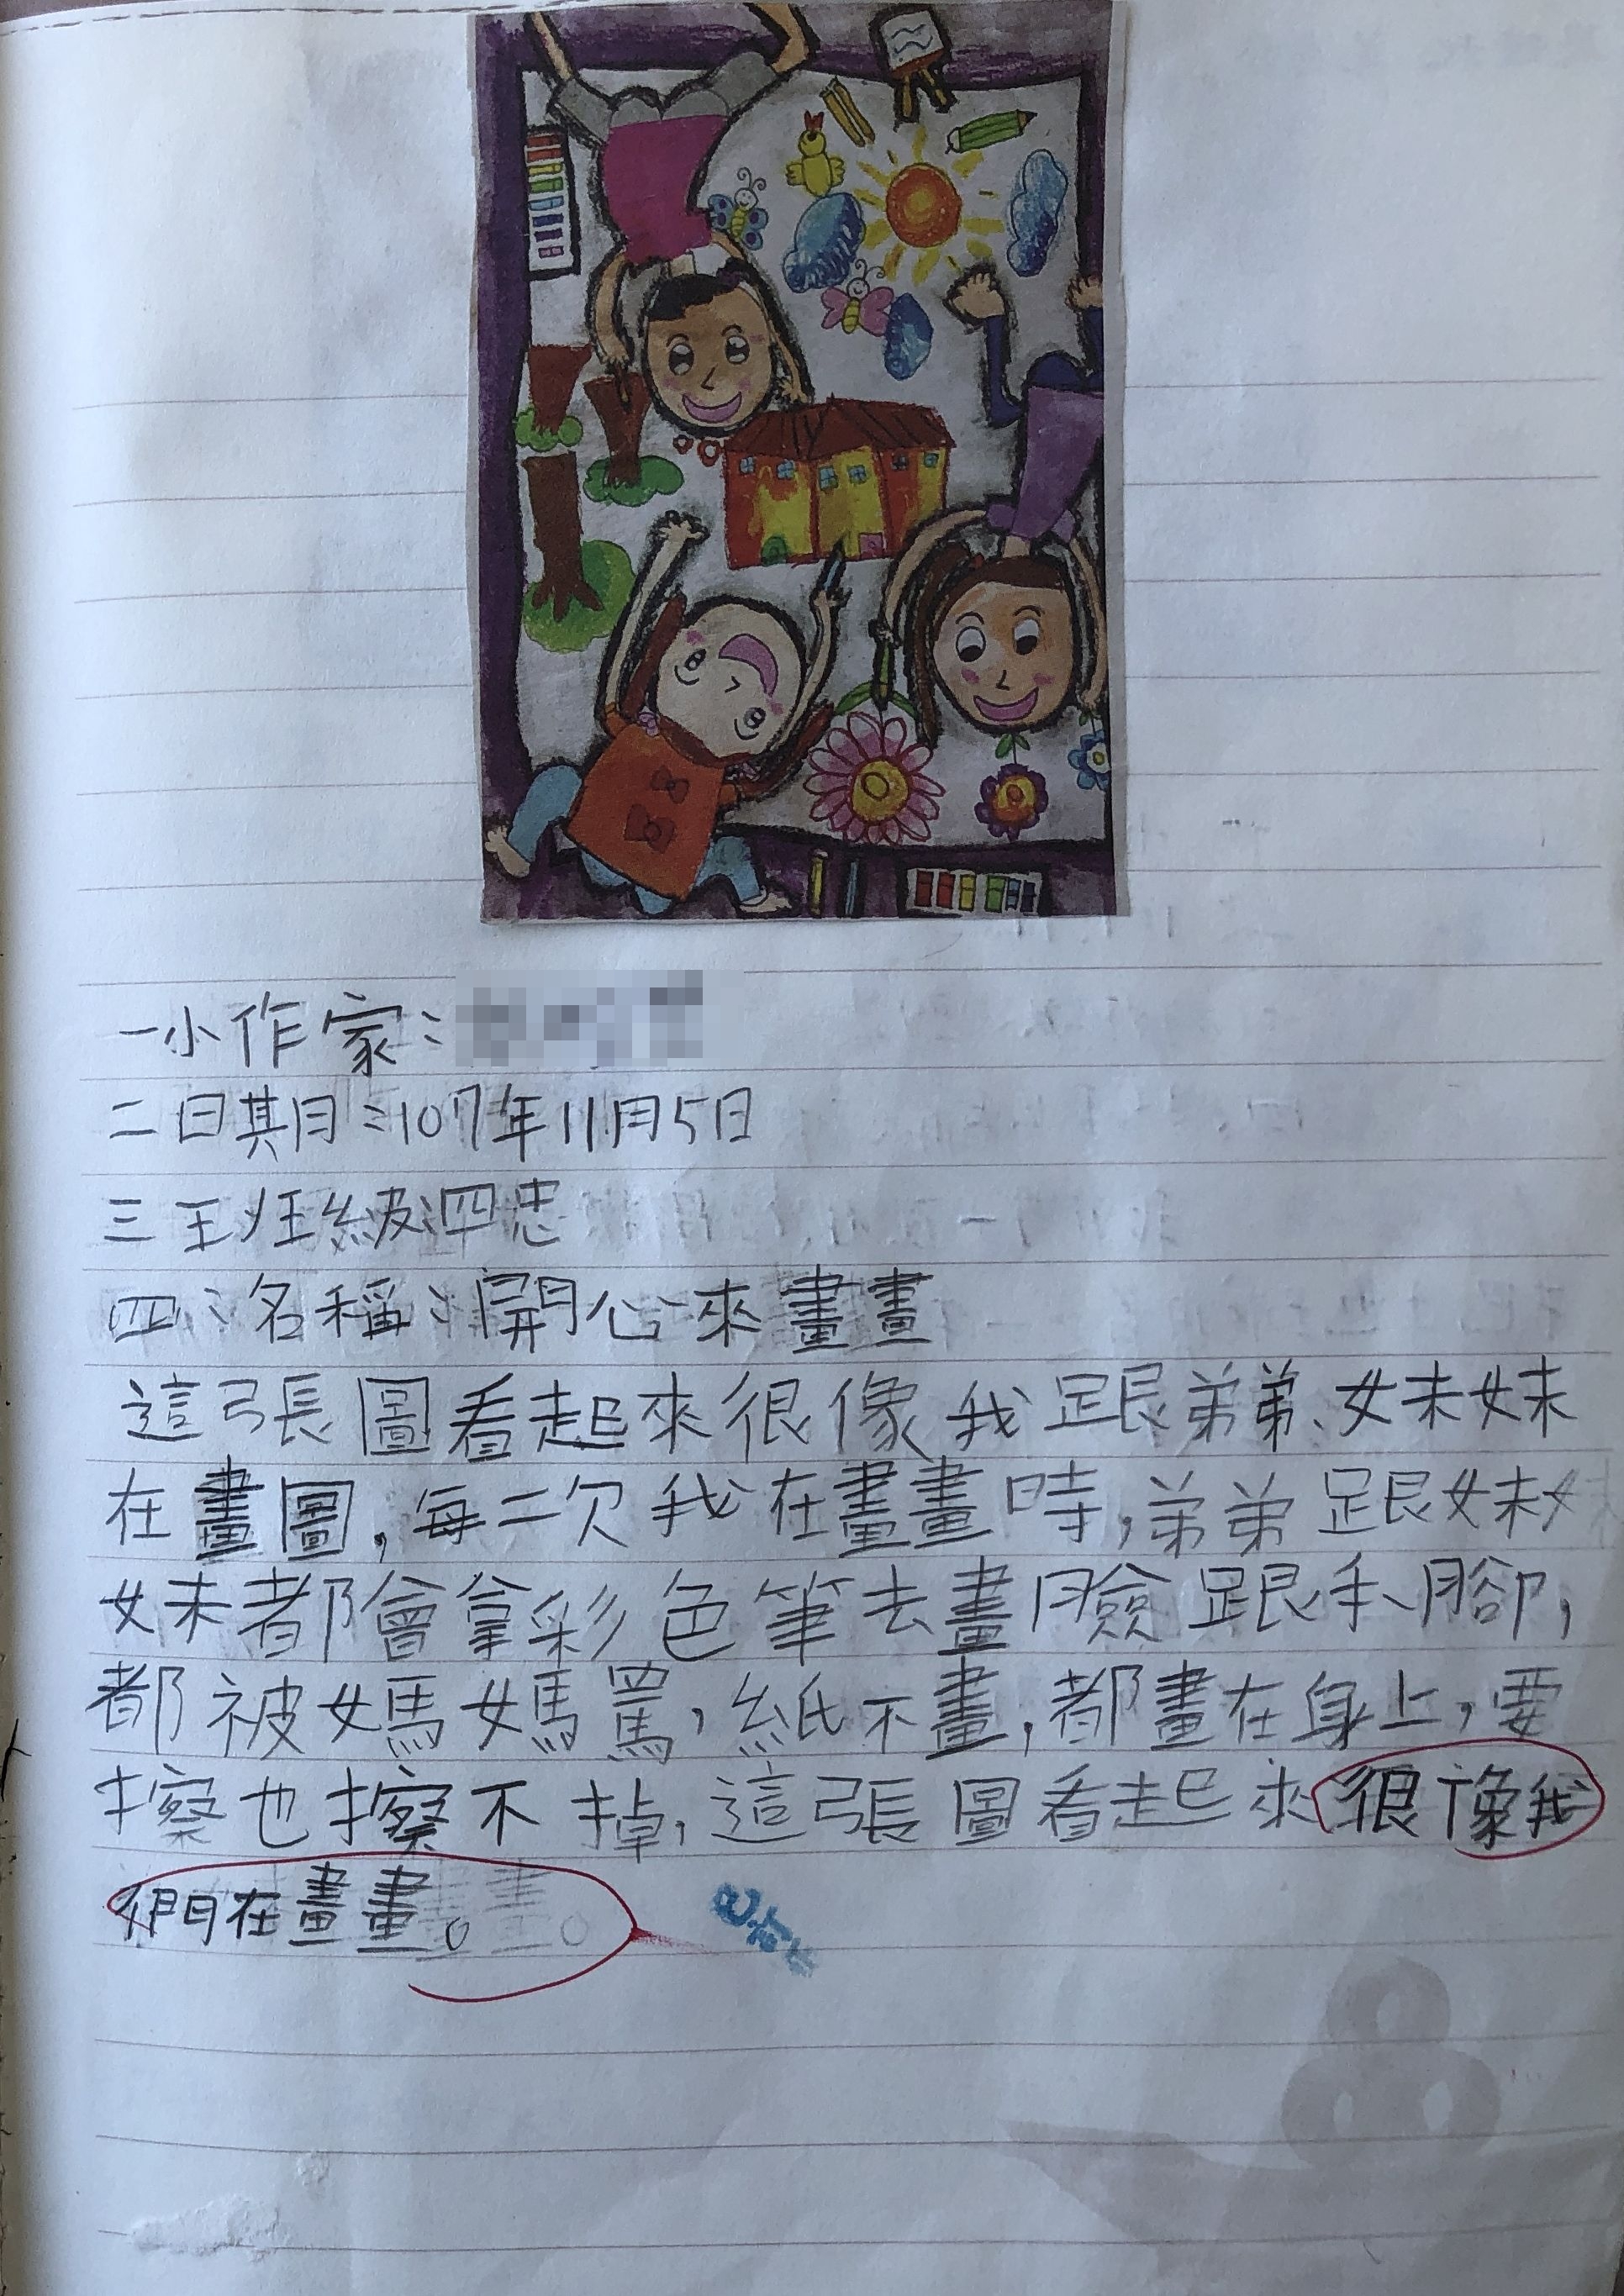 一小作家：
二日期：107年11月5日
三班級：四忠
四：名稱：開心來畫畫
這張圖看起來很像我跟弟弟、妹妹
在畫圖，每二次我在畫畫時，弟弟跟妹
妹都會拿彩色筆去畫臉跟手腳，
都被媽媽罵，紙不畫，都畫在身上，要
擦也擦不掉，這張圖看起來很像我
們在畫畫。